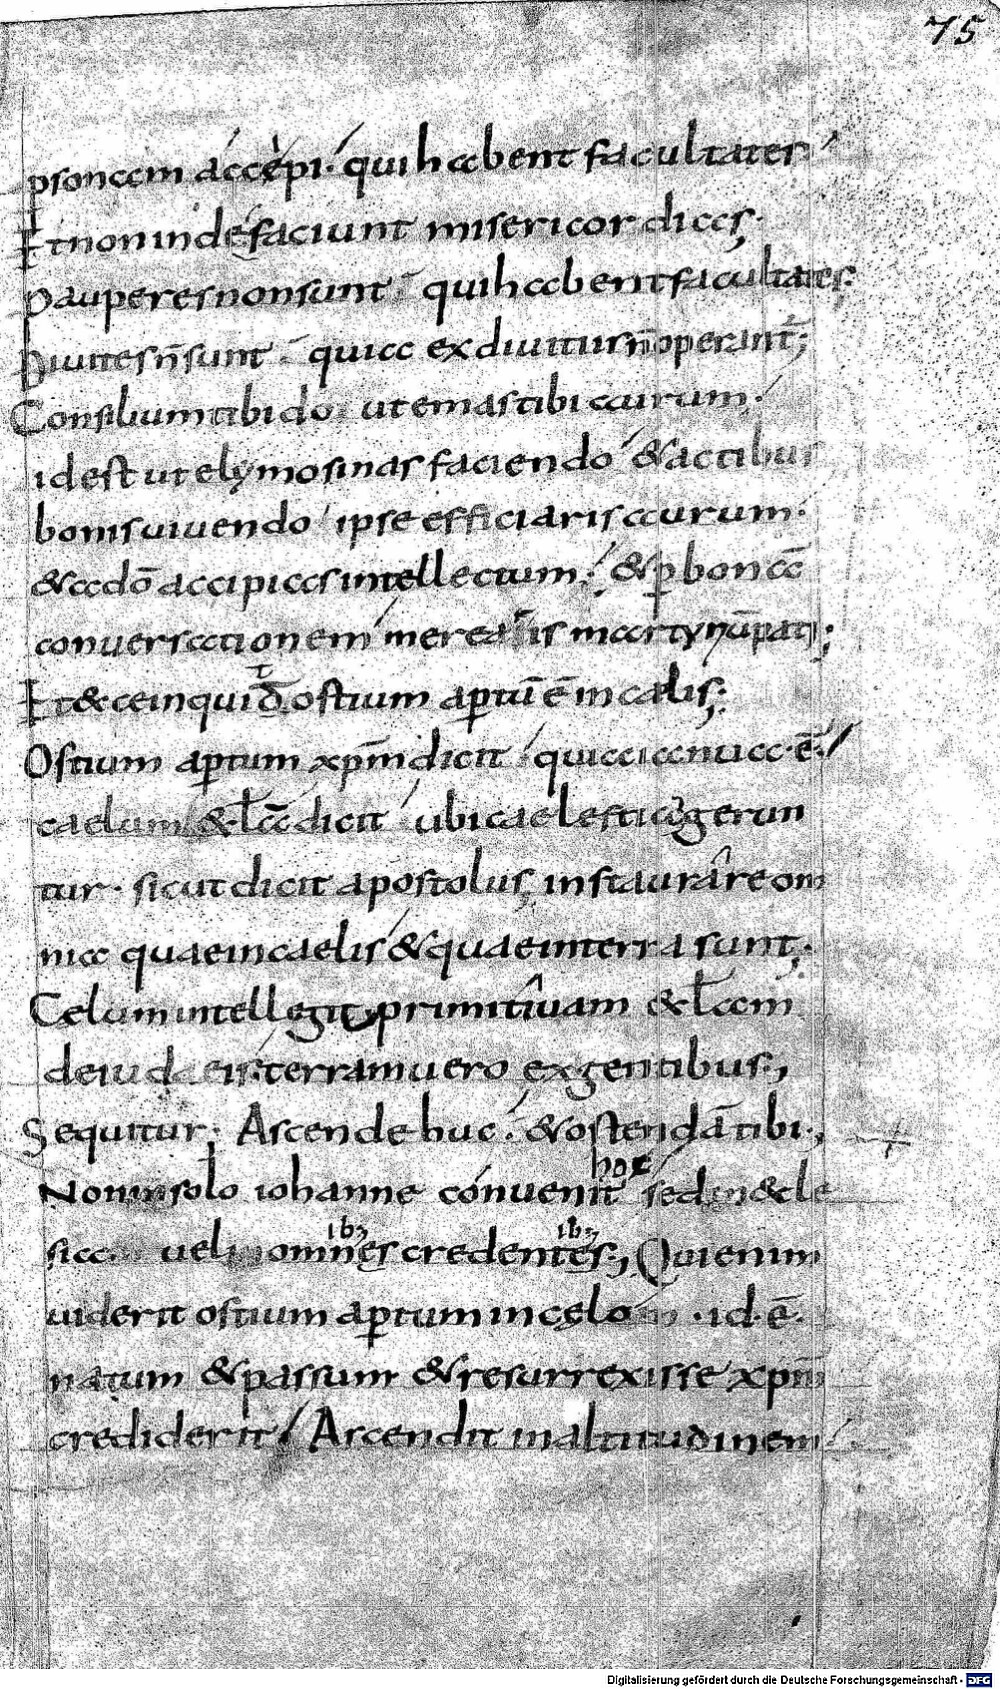 75
psonam accepi. qui habent facultates
Et non inde faciunt misericordias.
Pauperes non sunt qui habent facultates.
Diuites n̄ sunt quia ex diuitiis n̄ operant̄;
Consilium tibi do ut emas tibi aurum.
id est ut elymosinas faciendo & actibus
bonis uiuendo ipse efficiaris aurum.
& a dō accipias intellectum; & p bonā
conuersationem merearis martyriū pati;
Et & ce inquid ostium aptū ē in caelis;
Ostium aptum xpm̄ dicit quia ianua ē.
caelum & lāā dicit ubi caelestia gerun
tur. sicut dicit apostolus, instaurare om
nia quae in caelis & quae in terra sunt;.
Celum intellegit primitiuam & lam
de iudaeis. terram uero ex gentibus;,
Sequitur; Ascende huc. & ostendā tibi.,
Non in solo iohanne conuenit hoc sed in & cle
sia uel in omnes ib; credentes ib;, Qui enim
uiderit ostium aptum in celo . id. ē.
natum & passum & resurrexisse xpm̄
crediderit. Ascendit in altitudinem
Digitalisierung gefördert durch die Deutsche Forschungsgemeinschaft - DFG